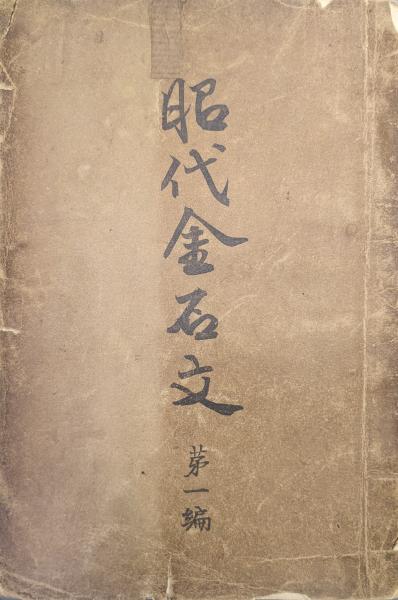 昭代金石文
第一編